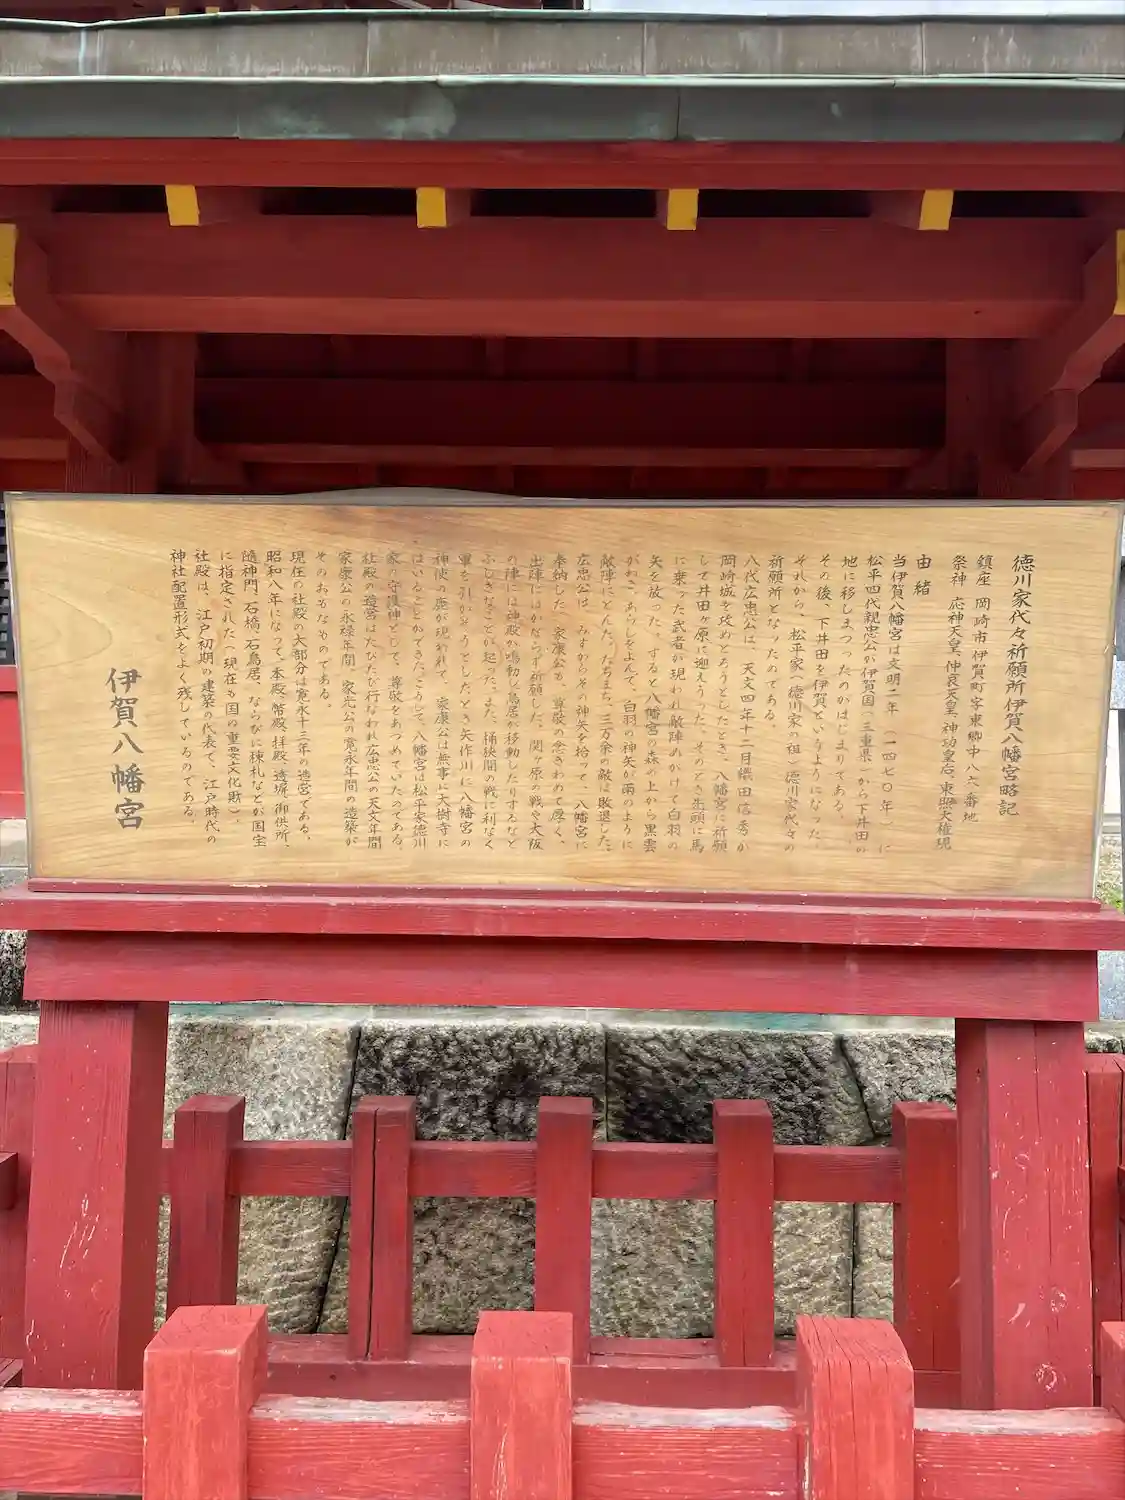 徳川家代々祈願所伊賀八幡宮略記
鎮座 岡崎市伊賀町字東郷中八六番地
祭神 応神天皇、仲哀天皇、神功皇后、東照大権現
由緒
当伊賀八幡宮は文明二年(一四七〇年)に
松平四代親忠公が伊賀国(三重県)から下井田の
地に移しまつったのがはじまりである。
その後、下井田を伊賀というようになった。
それから、松平家(徳川家の祖)徳川家代々の
祈願所となったのである。
八代広忠公は、天文四年十二月織田信秀が
岡崎城を攻めとろうとしたとき、八幡宮に祈願
して井田ヶ原に迎えうった。そのとき先頭に馬
に乗った武者が現われ敵陣めがけて白羽の
矢を放った。すると八幡宮の森の上から黒雲
がわき、あらしをよんで、白羽の神矢が雨のように
敵陣にとんだ。たちまち、三万余の敵は敗退した。
広忠公は、みずからその神矢を拾って、八幡宮に
奉納した。家康公も、尊敬の念きわめて厚く、
出陣にはかならず祈願した。関ヶ原の戦や大阪
の陣には神殿が鳴動し鳥居が移動したりするなど
ふしぎなことが起った。また、桶狭間の戦に利なく
軍を引かれようとしたとき矢作川に八幡宮の
神使の鹿が現われて、家康公は無事に大樹寺に
はいることができた。こうして、八幡宮は松平家徳川
家の守護神として、尊敬をあつめていたのである。
社殿の造営はたびたび行なわれ広忠公の天文年間
家康公の永禄年間、家光公の寛永年間の造築が
そのおもなものである。
現在の社殿の大部分は寛永十三年の造営である。
昭和八年になって、本殿、幣殿、拝殿、透塀、御供所、
随神門、石橋、石鳥居、ならびに棟札などが国宝
に指定された(現在も国の重要文化財)。
社殿は、江戸初期の建築の代表で、江戸時代の
神社配置形式をよく残しているのである。
伊賀八幡宮